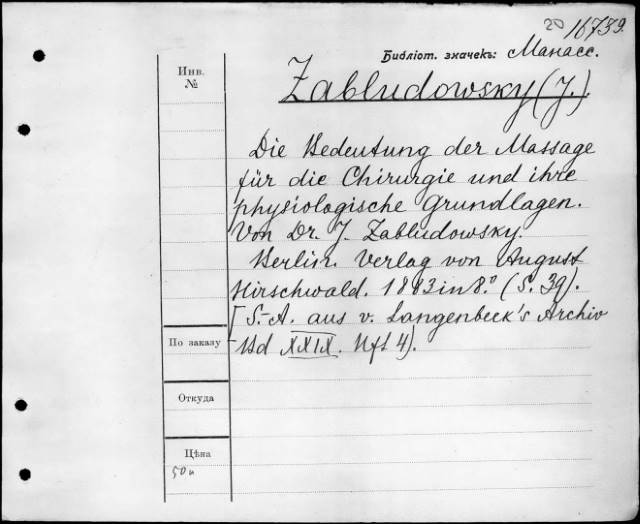 20 16739.
Библіот. значекъ: Манасс.
Инв.
№
Zabludowsky (J.).
Die Bedeutung der Massage
für die Chirurgie und ihre
physiologische Grundlagen.
Von Dr. J. Zabludowsky.
Berlin. Verlag von August
Hirschwald. 1883 in 8.º (S. 39).
[S.-A. aus v. Langenbeck's Archiv
Bd XXIX. Hft 4).
По заказу
Откуда
Цѣна
50